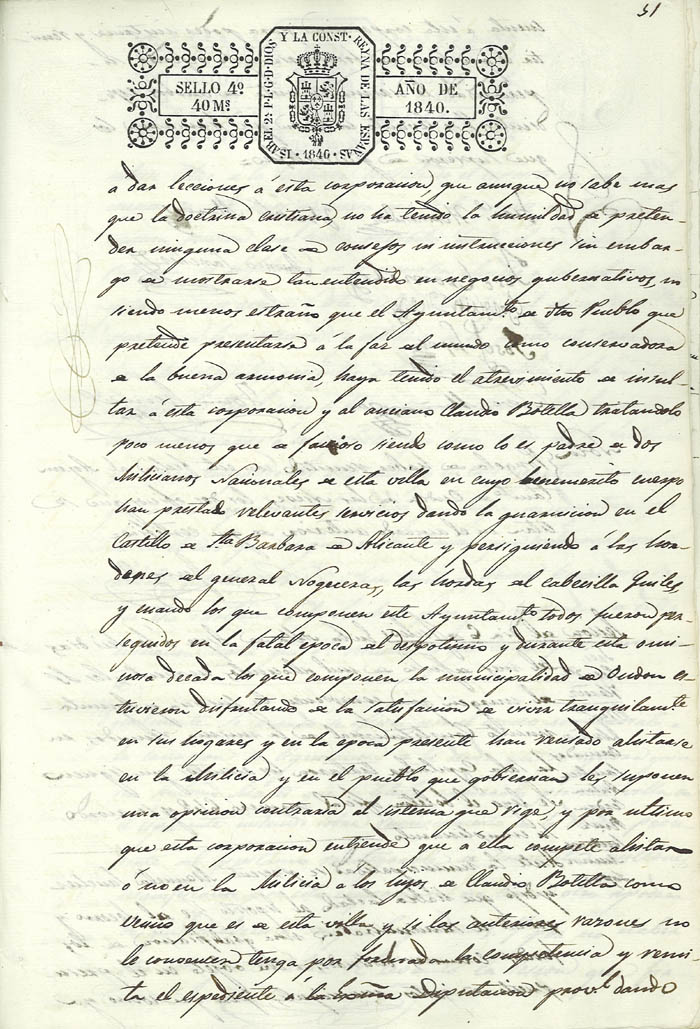 51
ISABEL 2ª P.L.G.D DIOS Y LA CONST· REYNA DE LAS ESPAÑAS
· 1840 ·
SELLO 4º
40 Mˢ
AÑO DE
1840.
á dar lecciones á esta corporacion, que aunque no sabe mas
que la doctrina cristiana, no ha tenido la humildad de preten-
der ninguna clase de consejos ni instrucciones sin embar-
go de mostrarse tan entendido en negocios gubernativos, no
siendo menos estraño que el Ayuntamᵗᵒ de dho Pueblo que
pretende presentarse á la faz del mundo como conservadora
de la buena armonia, haya tenido el atrevimiento de insul-
tar á esta corporacion y al anciano Claudio Botella tratandolo
poco menos que de faccioso siendo como lo es padre de dos
Milicianos Nacionales de esta villa en cuyo benemerito cuerpo
han prestado relevantes servicios dando la guarnicion en el
Castillo de Sᵗᵃ Barbara de Alicante y persiguiendo á las hor-
denes del general Nogueras, las hordas del cabecilla Quiles,
y cuando los que componen este Ayuntamᵗᵒ todos fueron per-
seguidos en la fatal epoca del despotismo y durante esta omi-
nosa decada los que componen la municipalidad de Ondon es-
tuvieron disfrutando de la satisfacion de vivir tranquilamᵗᵉ
en sus hogares y en la epoca presente han reusado alistarse
en la Milicia y en el pueblo que gobiernan les suponen
una opinion contraria al sistema que rige, y por ultimo
que esta corporacion entiende que a ella compete alistar
ó no en la Milicia a los hijos de Claudio Botella como
vecino que es de esta villa y si las anteriores razones no
le convencen tenga por formada la competencia y remi-
ta el espediente á la Exma Diputacion provˡ dando